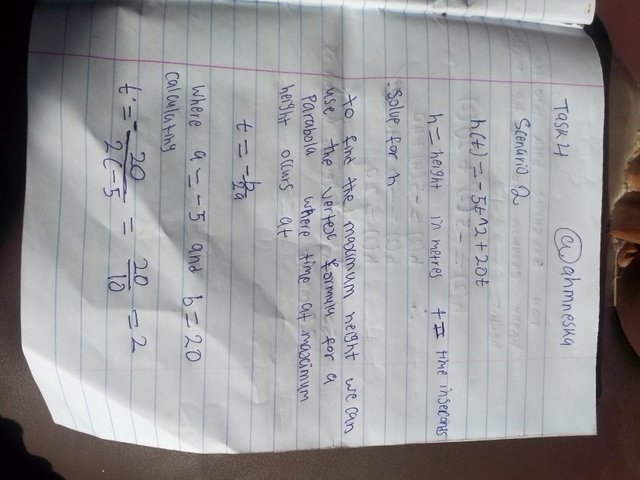 @ahmneska
Task 4
Scenario 2
h(t) = -5t^2 + 20t
h = height in metres t = time in seconds
Solve for h
To find the maximum height we can
use the vertex formula for a
Parabola where time at maximum
height occurs at
t = -b/2a
Where a = -5 and b = 20
Calculating
t = - 20/2(-5 = 20/10 = 2